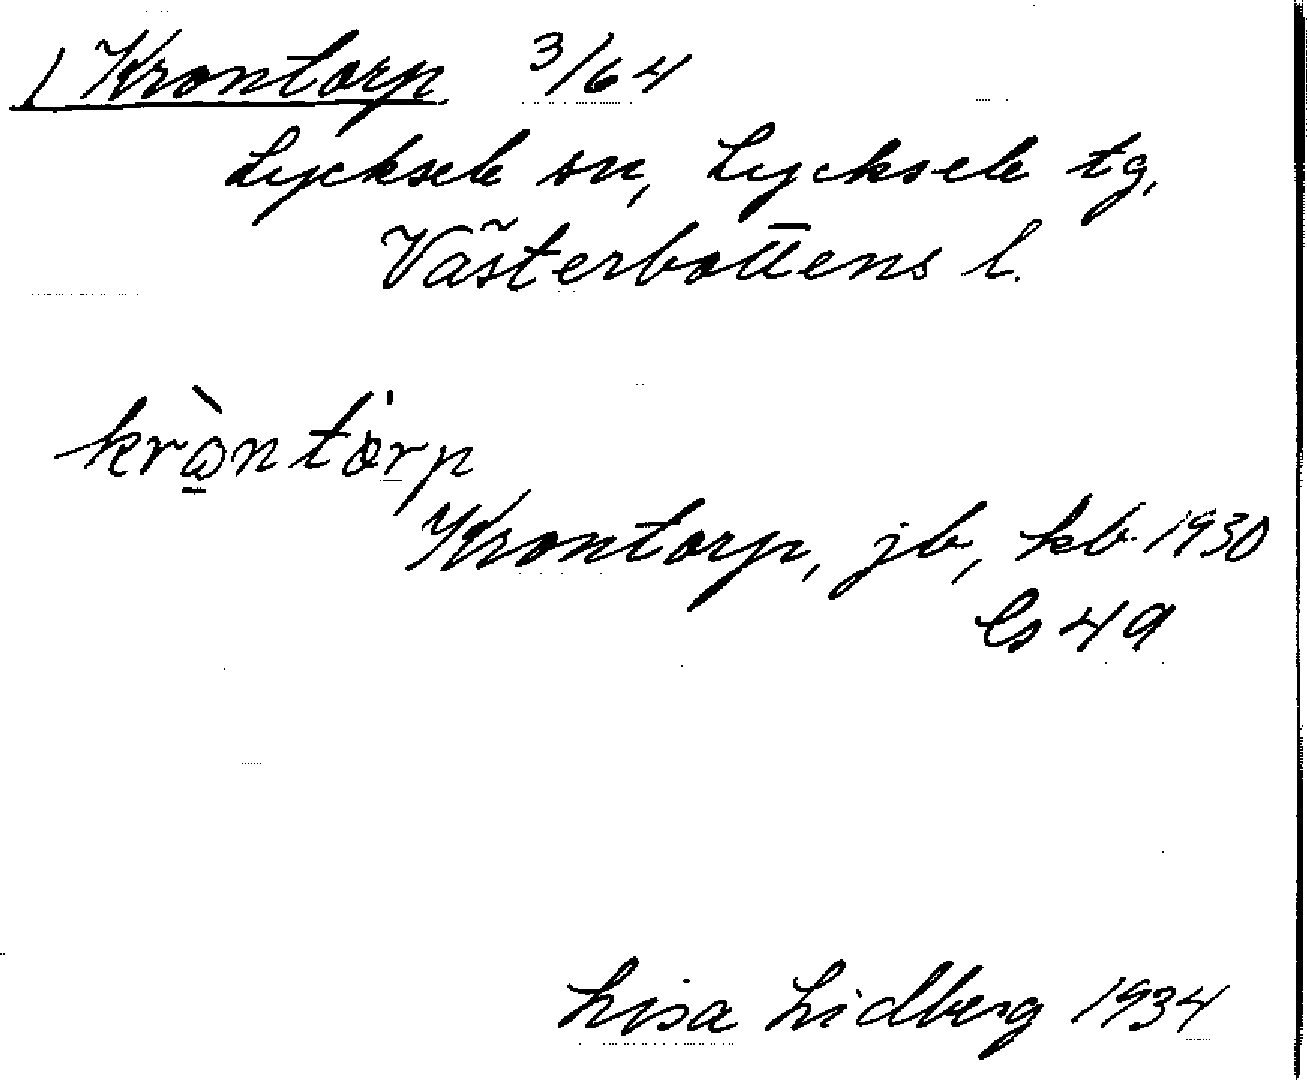 1 Krontorp 3/64
Lycksele sn, Lycksele tg,
Västerbottens l.
kròntòrp
Krontorp, jb, kb 1930
Ls 49
Lisa Lidberg 1934